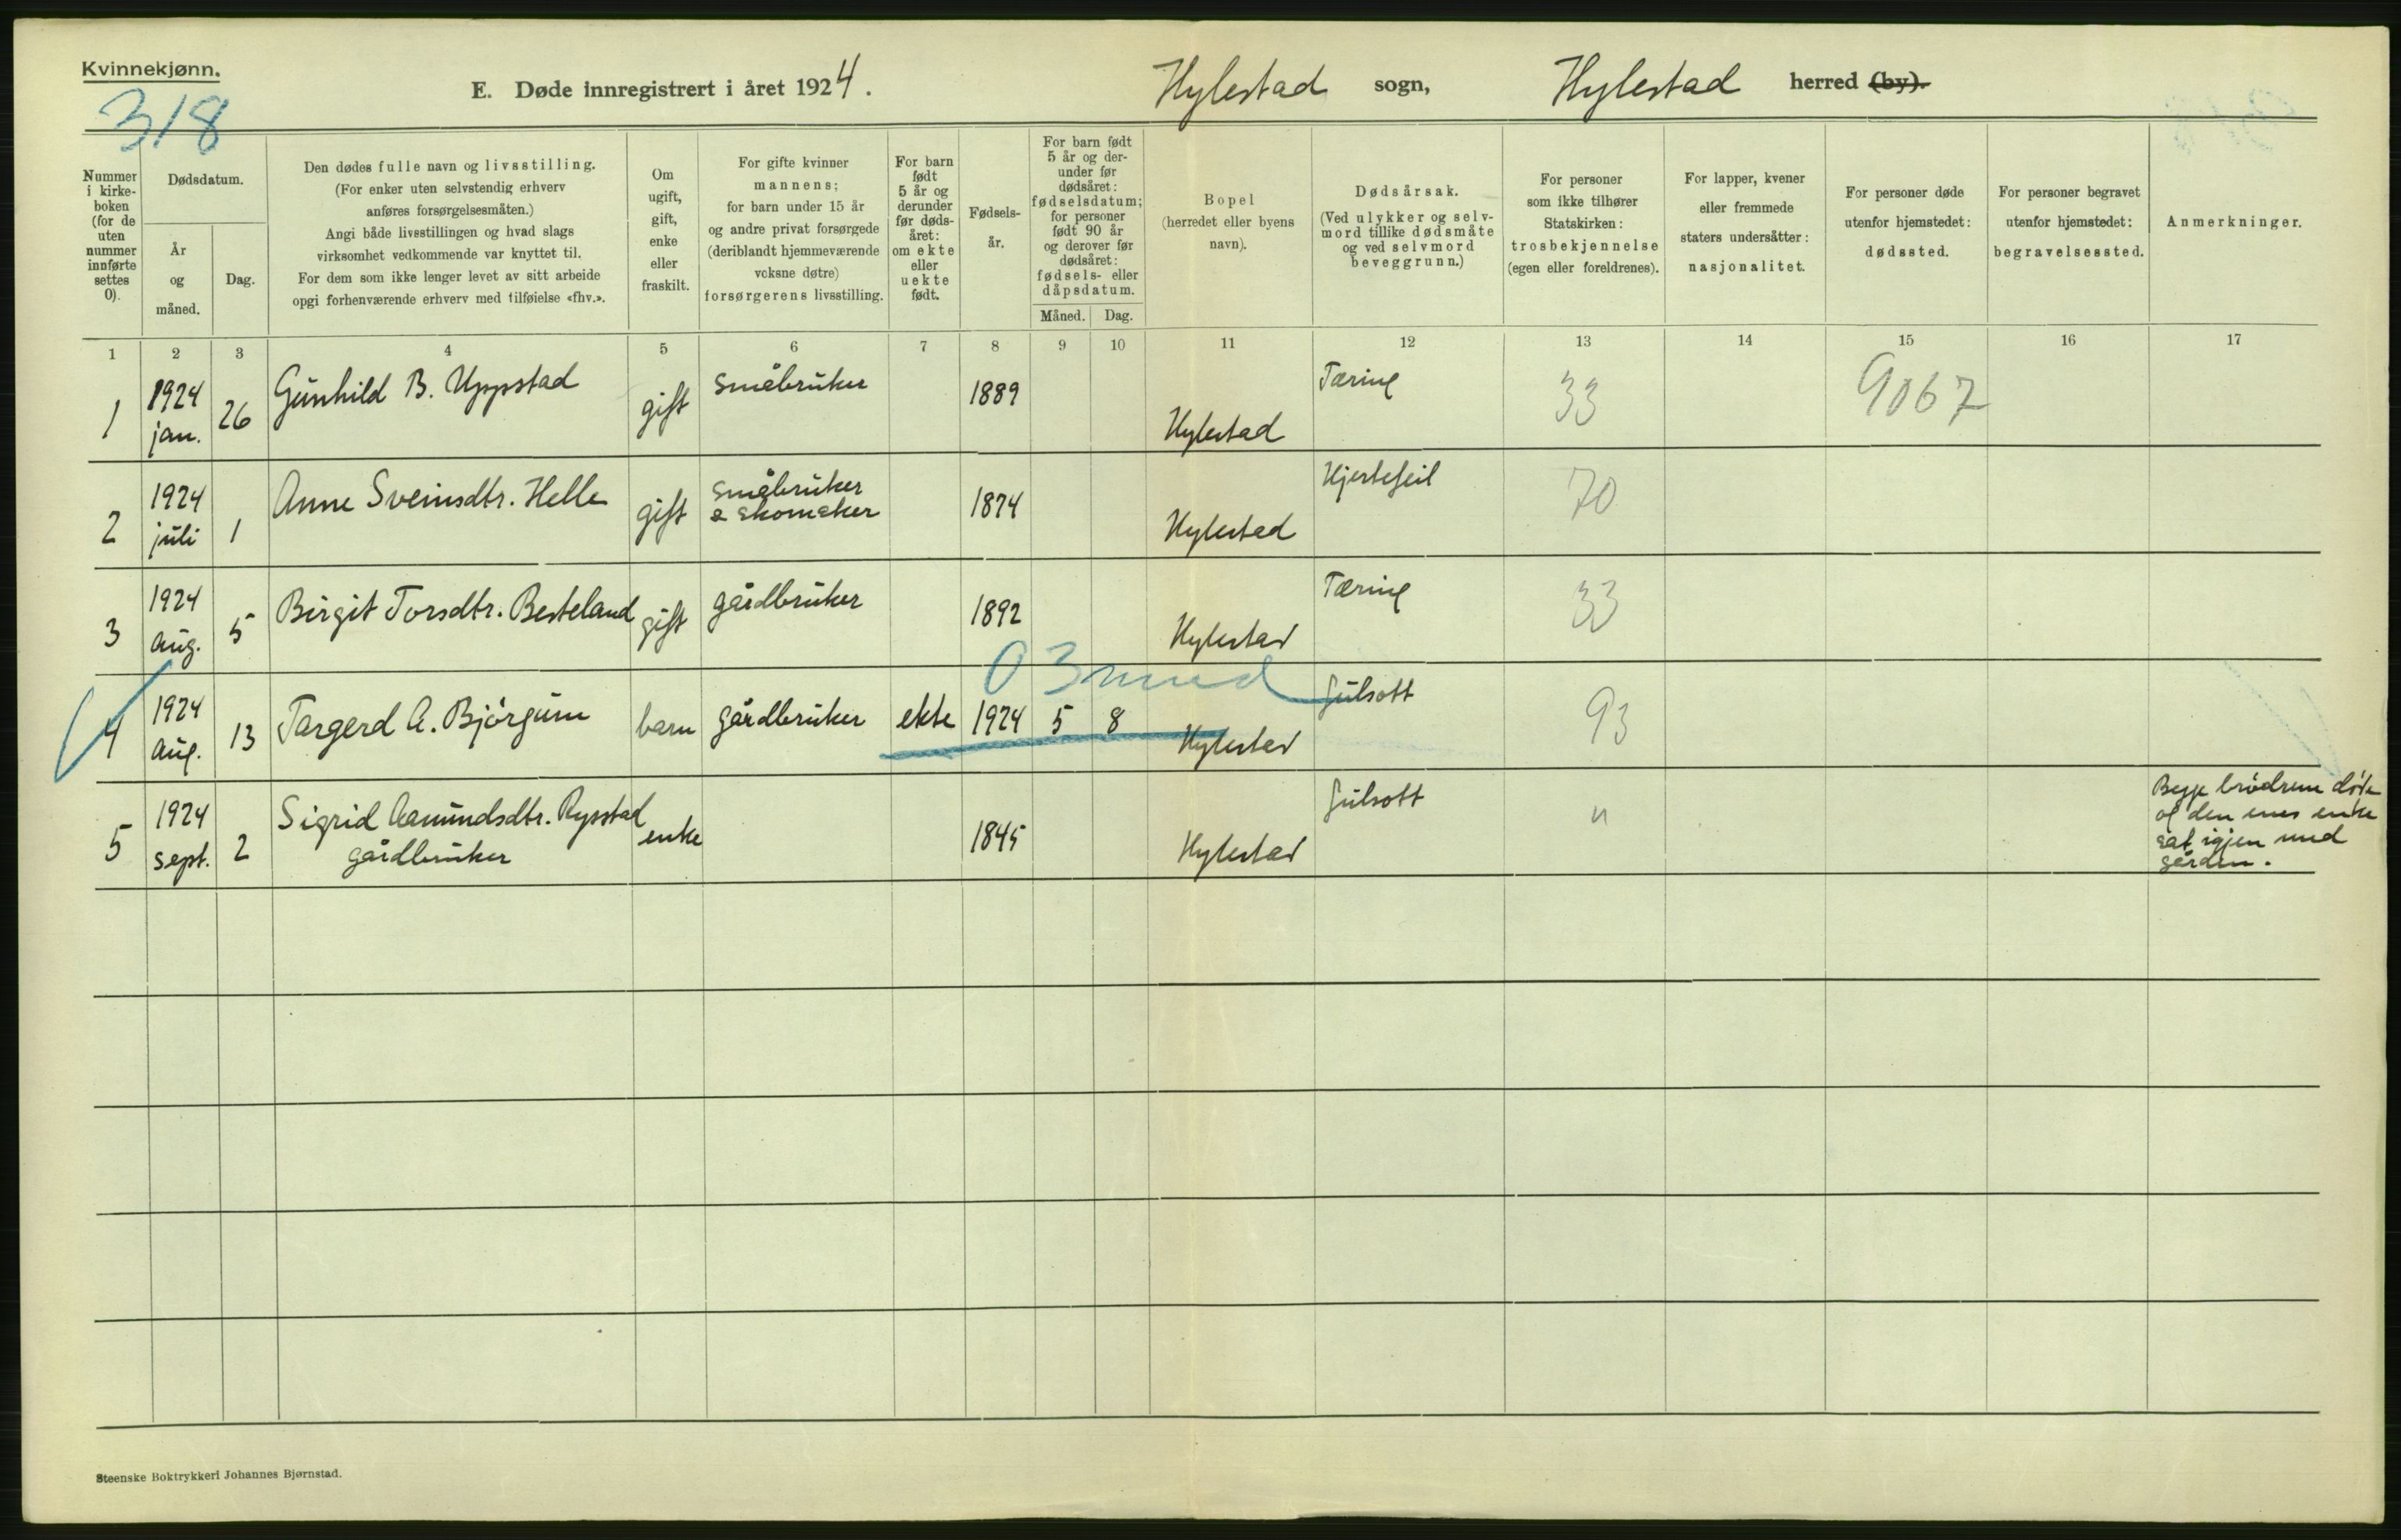 Kvinnekjønn.
318
E. Døde innregistrert i året 1924. Hylestad sogn, Hylestad herred (by).
Nummer i kirke- boken (for de uten nummer innførte settes 0).
Dødsdatum.
År og måned.
Dag.
Den dødes fulle navn og livsstilling.
(For enker uten selvstendig erhverv
anføres forsørgelsesmåten.)
Angi både livsstillingen og hvad slags
virksomhet vedkommende var knyttet til.
For dem som ikke lenger levet av sitt arbeide
opgi forhenværende erhverv med tilføielse «fhv.».
Om
ugift,
gift,
enke
eller
fraskilt.
For gifte kvinner
mannens;
for barn under 15 år
og andre privat forsørgede
(deriblandt hjemmeværende
voksne døtre)
forsørgerens livsstilling.
For barn
født
5 år og
derunder
før døds-
året:
om ekte
eller
uekte
født.
Fødsels-
år.
For barn født
5 år og der-
under før
dødsåret:
fødselsdatum;
for personer
født 90 år
og derover før
dødsåret:
fødsels- eller
dåpsdatum.
Måned. Dag.
Bopel
(herredet eller byens
navn).
Dødsårsak.
(Ved ulykker og selv-
mord tillike dødsmåte
og ved selvmord
beveggrunn.)
For personer
som ikke tilhører
Statskirken:
trosbekjennelse
(egen eller foreldrenes).
For lapper, kvener
eller fremmede
staters undersåtter:
nasjonalitet.
For personer døde
utenfor hjemstedet:
dødssted.
For personer begravet
utenfor hjemstedet:
begravelsessted.
Anmerkninger.
1 2 3 4 5 6 7 8 9 10 11 12 13 14 15 16 17
1 1924 jan. 26 Gunhild B. Uppstad gift småbruker 1889 Hylestad Tæring 33 9067
2 1924 juli 1 Anne Sveinsdtr. Helle gift småbruker & skomaker 1874 Hylestad Hjertefeil 70
3 1924 aug. 5 Birgit Torsdtr. Besteland gift gårdbruker 1892 Hylestad Tæring 33
0 3 mnd
4 1924 aug. 13 Targerd A. Bjørgum barn gårdbruker ekte 1924 5 8 Hylestad Gulsott 93
5 1924 sept. 2 Sigrid Aamundsdtr. Rysstad gårdbruker enke 1845 Hylestad Gulsott "
Begge brødrene døde
og den enes enke
sat igjen med
gården.
Steenske Boktrykkeri Johannes Bjørnstad.